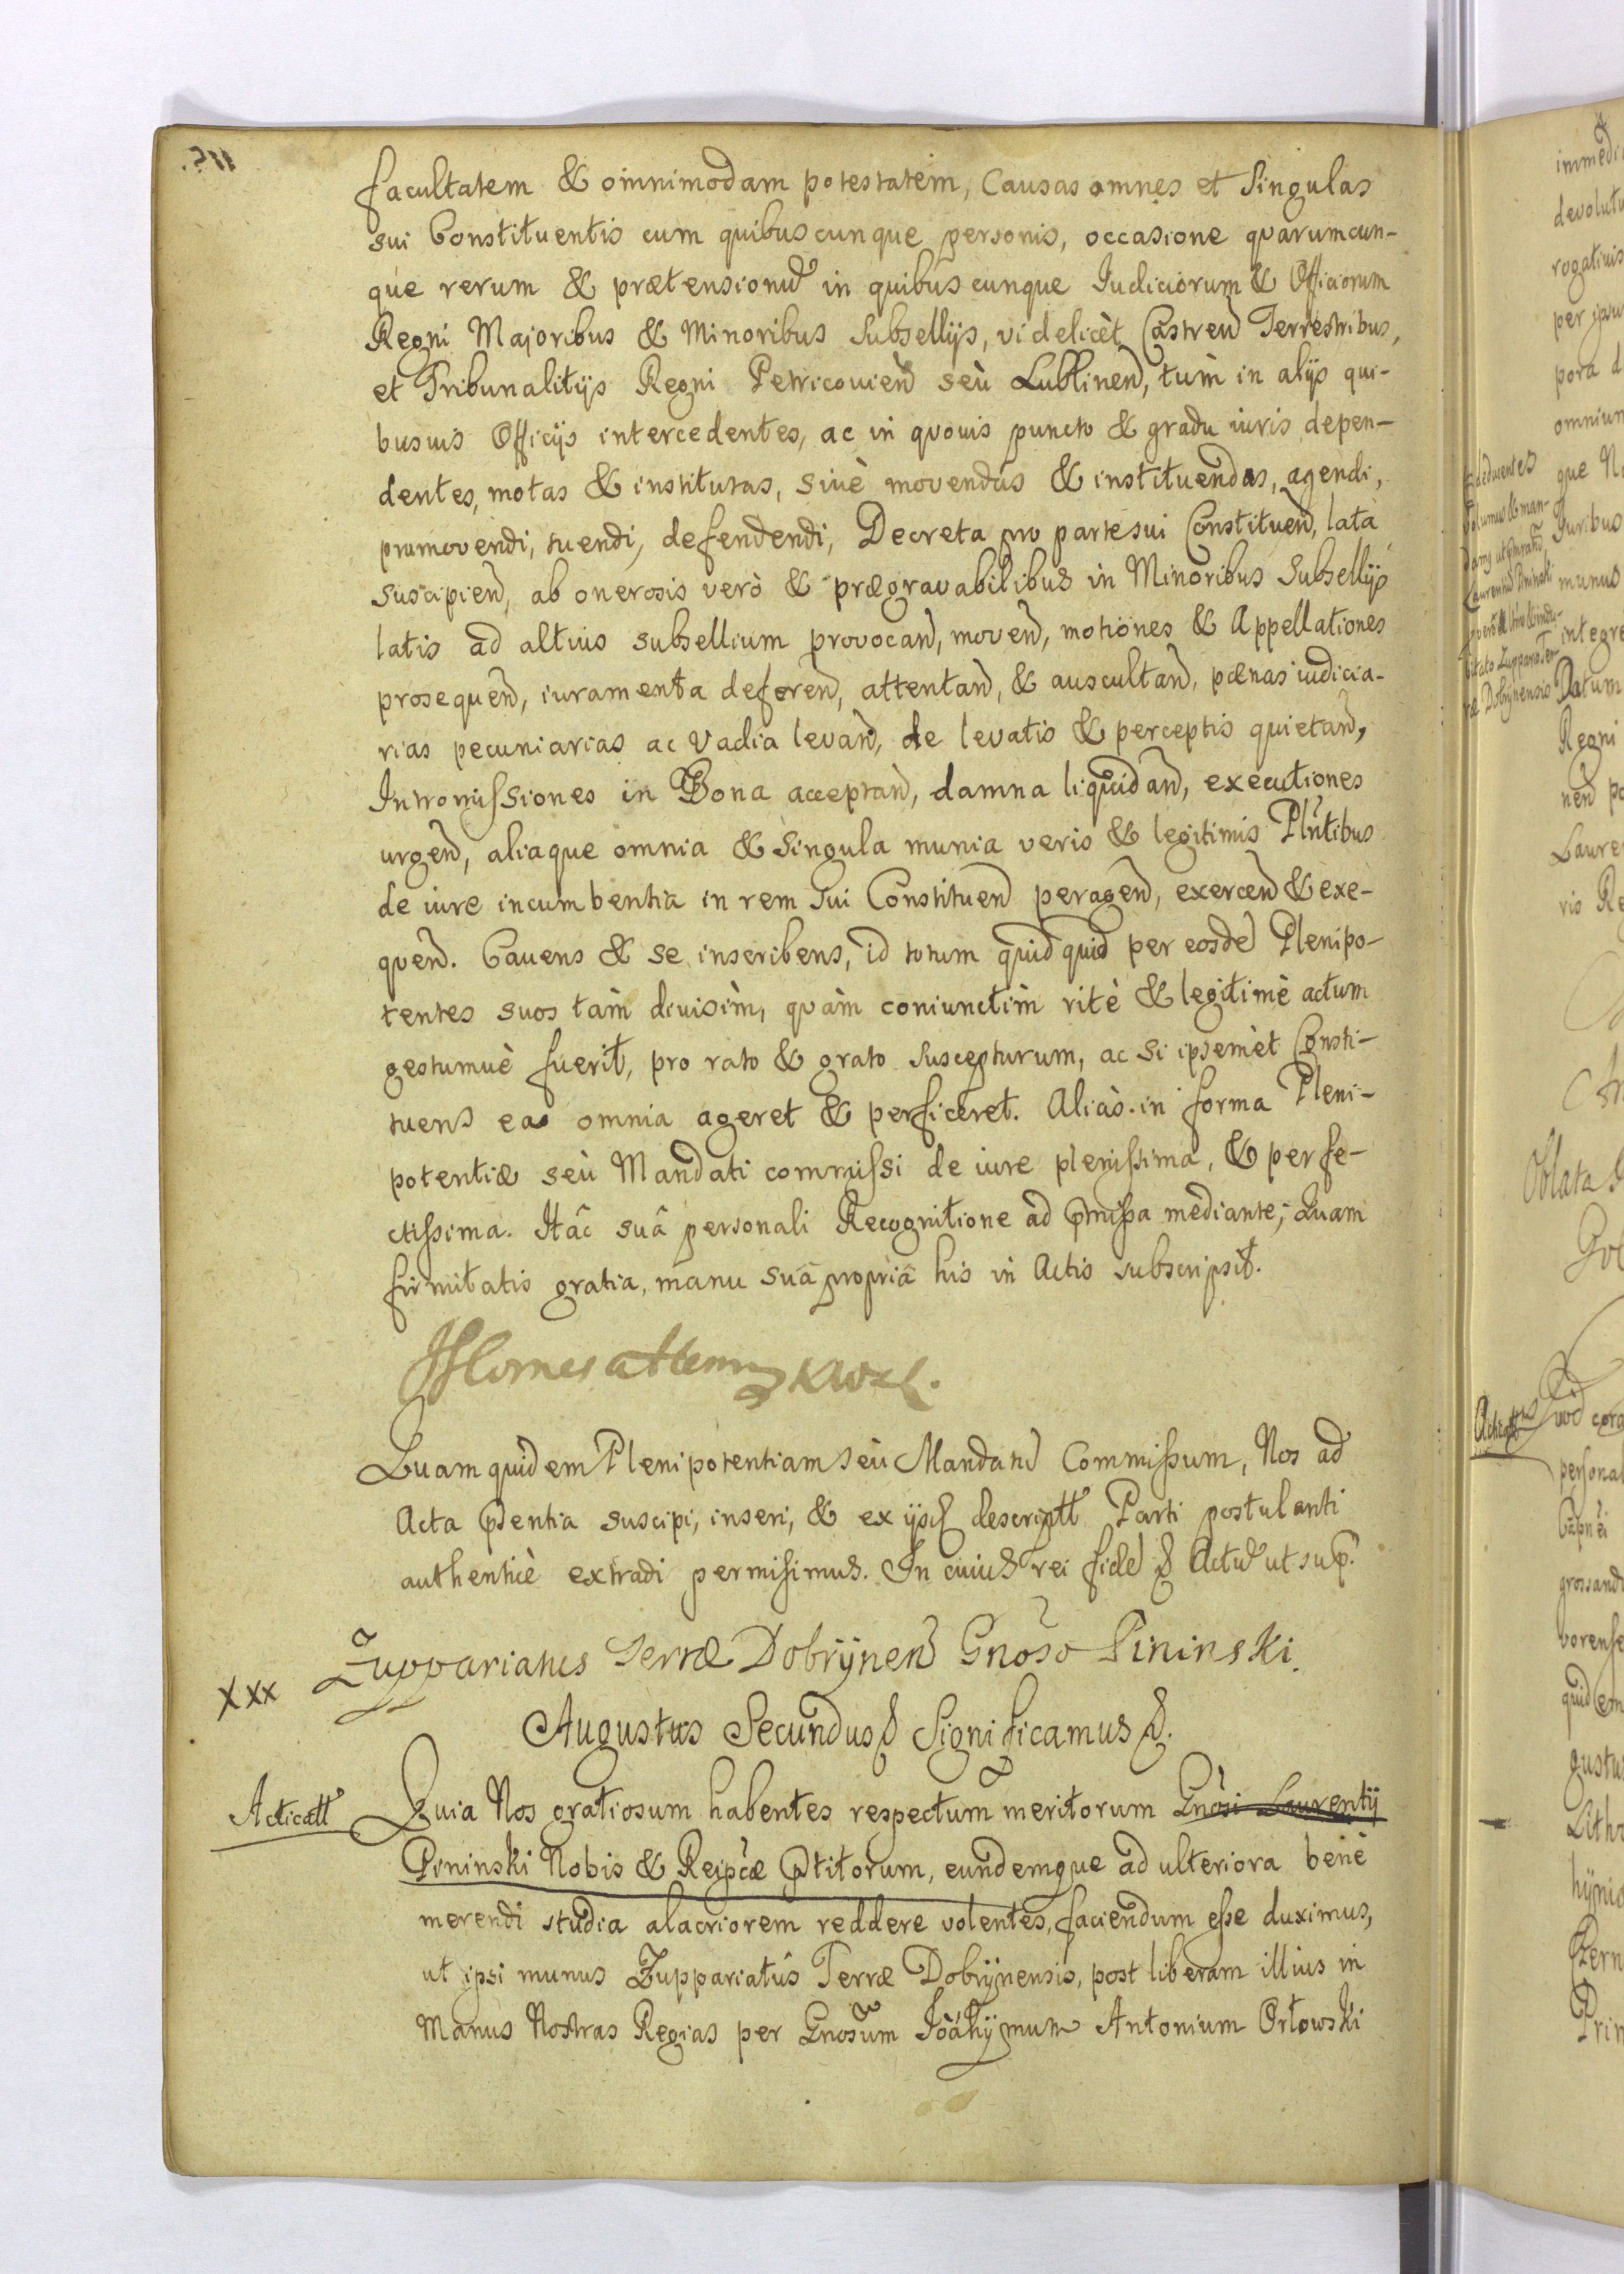 facultatem & omnimodam potestatem, Causas omnes et Singulas
sui Constituentis cum quibuscunque personis, occasione quarumcun-
que rerum & prætensionu in quibuscunque Iudiciorum & Officiorum
Regni Majoribus & Minoribus Subsellijs, videlicèt Castren Terrestribus,
et Tribunalitijs Regni Petricovien seù Lublinen, tùm in alijs qui-
busuis Officijs intercedentes, ac in quouis puncto & gradu iuris depen-
dentes, motas & institutas, siuè movendas & instituendas, agendi,
promovendi, tuendi, defendendi, Decreta pro parte sui Constituen, lata
suscipien, ab onerosis verò & prægravabilibus in Minoribus Subsellijs
latis ad altius subsellium provocan, moven, motiones & Appellationes
prosequen, iuramenta deferen, attentan, & auscultan, pænas iudicia-
rias pecuniarias ac Vadia levan, de levatis & perceptis quietan,
Intromissiones in Bona acceptan, damna liquidan, executiones
urgen, aliaque omnia & Singula munia veris & legitimis Plntibus
de iure incumbentia in rem sui Constituen peragen, exercen & exe-
quen. Cauens & se inscribens, id totum quidquid per eosde Plenipo-
tentes suos tàm diuisìm, quàm coniunctìm ritè & legitimè actum
gestumuè fuerit, pro rato & grato suscepturum, ac si ipsemèt Consti-
tuens ea omnia ageret & perficeret. Aliàs in forma Pleni-
potentiæ seù Mandati commissi de iure plenissima, & perfe-
ctissima. Hâc suâ personali Recognitione ad pmissa mediante, Quam
firmitatis gratia, manu suâ propriâ his in Actis subscripsit.
Quam quidem Plenipotentiam seù Mandatu Commissum, Nos ad
Acta pntia suscipi, inseri, & ex ijsd descript Parti postulanti
authenticè extradi permisimus. In cuius rei fide & Actu ut sup.
Zuppariatus Terræ Dobrÿnen Gnoso Pininski.
xxx
Augustus Secundus & Significamus &.
Acticatt
Quia Nos gratiosum habentes respectum meritorum Gnosi Laurentij
Pininski Nobis & Reipcæ pstitorum, eundemque ad ulteriora benè
merendi studia alacriorem reddere volentes, faciendum esse duximus,
ut ipsi munus Zuppariatûs Terræ Dobrÿnensis, post liberam illius in
Manus Nostras Regias per Gnosum Antonium Orłowski